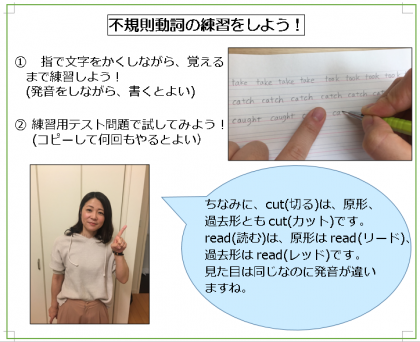 不規則動詞の練習をしよう！
① 指で文字をかくしながら、覚える
まで練習しよう！
(発音をしながら、書くとよい)
② 練習用テスト問題で試してみよう！
(コピーして何回もやるとよい)
take take take take took took took
catch catch catch catch catch
caught caught
ちなみに、cut(切る)は、原形、
過去形とも cut(カット)です。
read(読む)は、原形は read(リード)、
過去形は read(レッド)です。
見た目は同じなのに発音が違い
ますね。